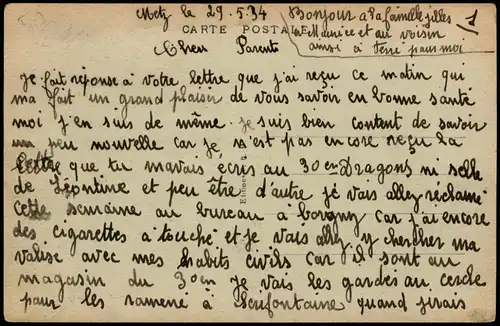 Metz le 29.5.34
Bonjour a la famille gilles
Maurice et au voisin
ainsi à
pour moi
1
CARTE POSTALE
Chers Parents
Je fait réponse à votre lettre que j'ai reçu ce matin qui
ma fait un grand plaisir de vous savoir en bonne santé
moi j'en suis de même. je suis bien content de savoir
un peu nouvelle car je n'est pas encore reçu la
lettre que tu mavais écris au 30en Dragons ni selle
de Léontine et peu être d'autre je vais alley réclamé
cette semaine au bureau a car j'ai encore
des cigarettes a touché et je vais alley y chercher ma
valise avec mes habits civils car il sont au
magasin du 30en je vais les gardes au cercle
pour les ramené à quand jirais